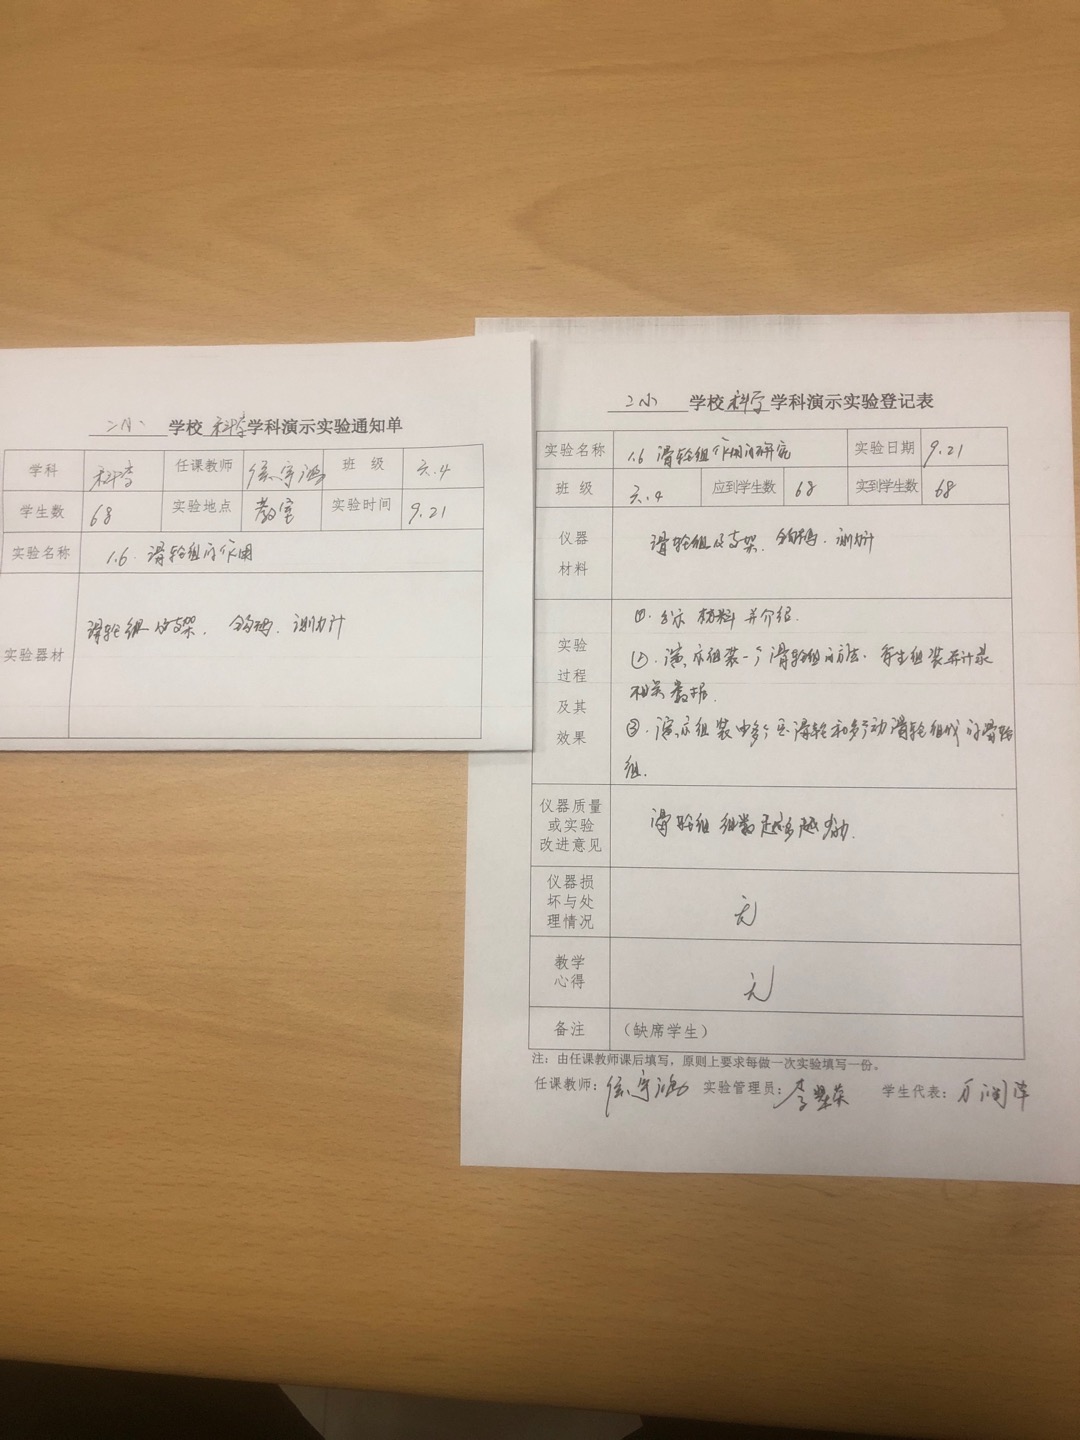 二小 学校 科学 学科演示实验通知单
学科 科学 任课教师 班级 六.4
学生数 68 实验地点 教室 实验时间 9.21
实验名称 1.6 滑轮组的作用
实验器材 滑轮组及支架、钩码、测力计
二小 学校 科学 学科演示实验登记表
实验名称 1.6 滑轮组作用的研究 实验日期 9.21
班级 六.4 应到学生数 68 实到学生数 68
仪器材料 滑轮组及支架、钩码、测力计
实验过程及其效果
①.出示材料并介绍.
②.演示组装一个滑轮组的方法.学生组装并记录
相关数据.
③.演示组装由多个定滑轮和多个动滑轮组成的滑轮
组.
仪器质量或实验改进意见 滑轮组组数越多越省力.
仪器损坏与处理情况 无
教学心得 无
备注 （缺席学生）
注：由任课教师课后填写，原则上要求每做一次实验填写一份。
任课教师： 实验管理员： 学生代表：